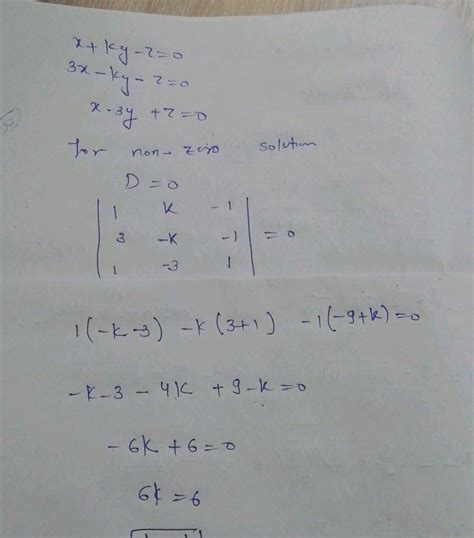 x + ky - z = 0
3x - ky - z = 0
x - 3y + z = 0
for non-zero solution
D = 0
| 1 k -1 |
| 3 -k -1 | = 0
| 1 -3 1 |
1(-k-3) -k(3+1) -1(-9+k) = 0
-k - 3 - 4k + 9 - k = 0
- 6k + 6 = 0
6k = 6